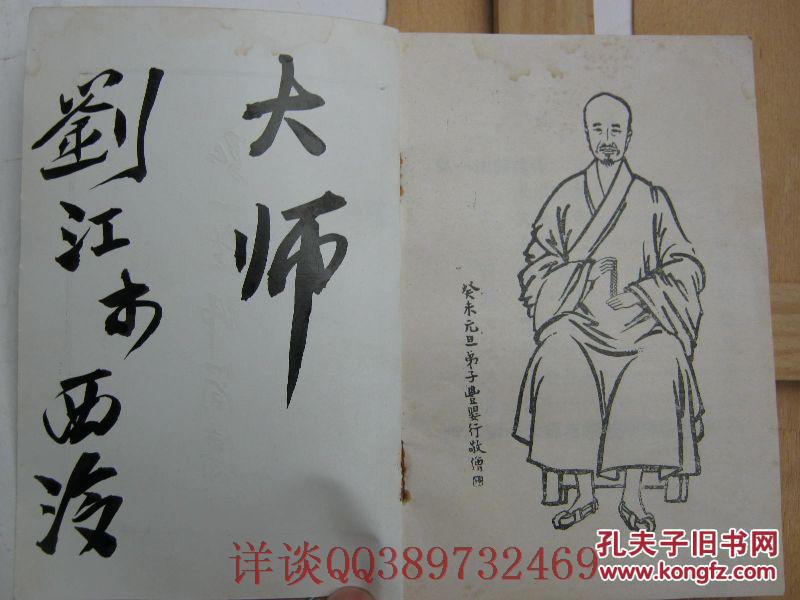 大师
劉江
西泠
癸未元旦弟子豐嬰行敬繪
详谈QQ389732469
孔夫子旧书网
www.kongfz.com